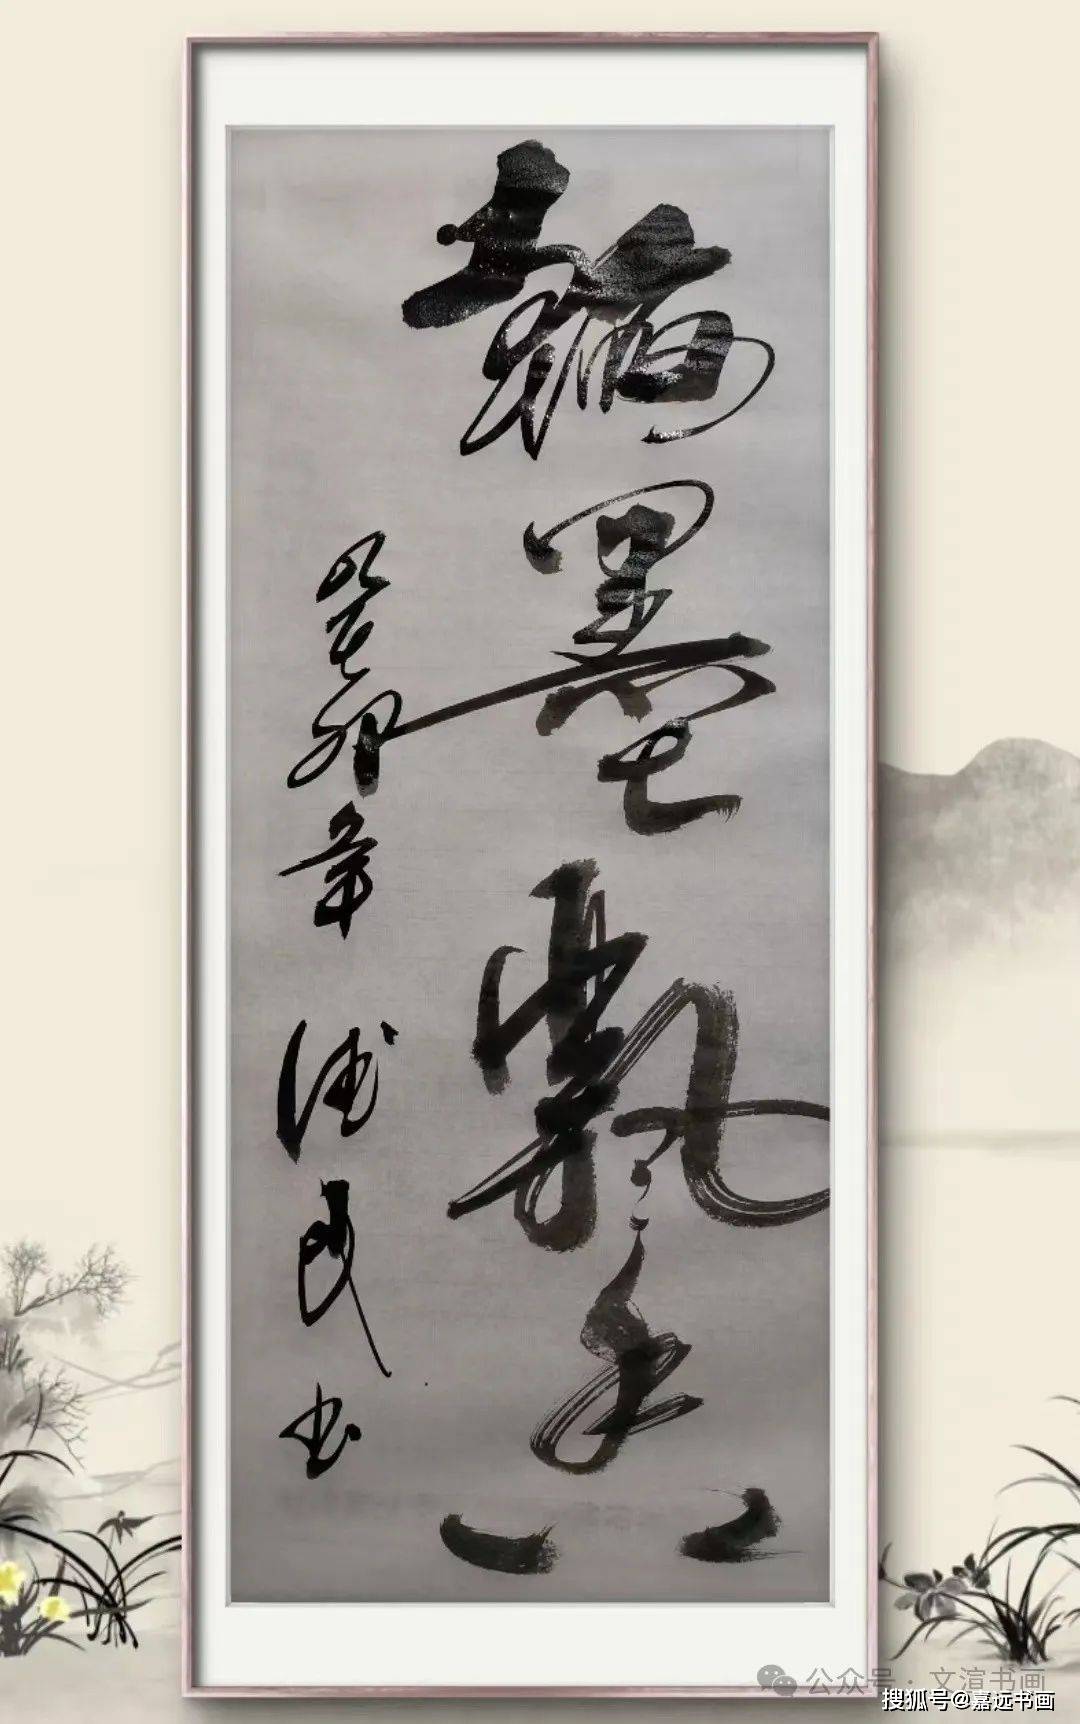 翰墨飘香
癸卯年 民书
公众号 · 文渲书画
搜狐号@嘉远书画